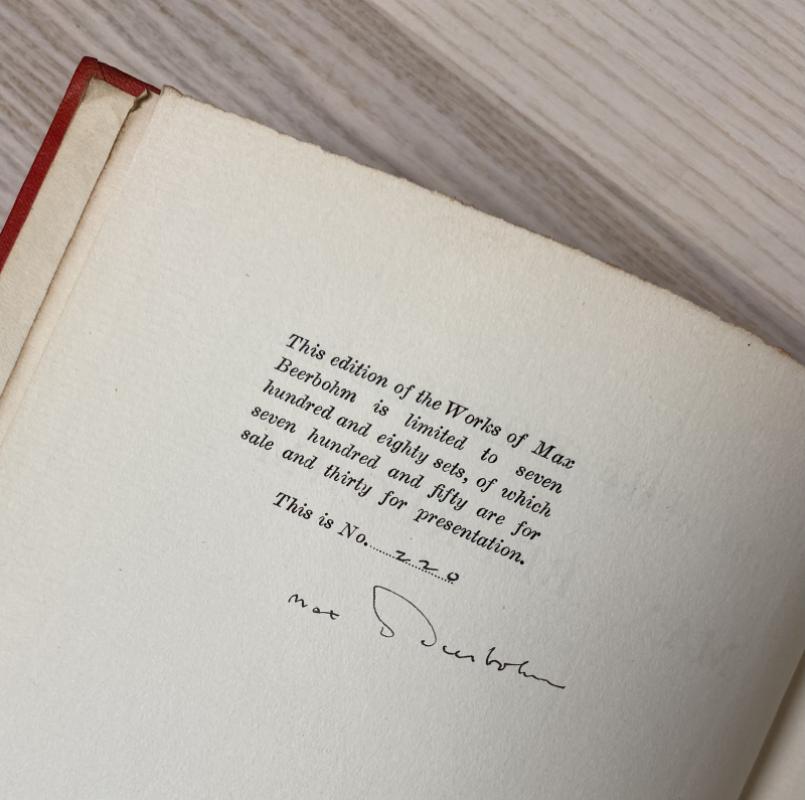 This edition of the Works of Max
Beerbohm is limited to seven
hundred and eighty sets, of which
seven hundred and fifty are for
sale and thirty for presentation.
This is No. 220
Max Beerbohm